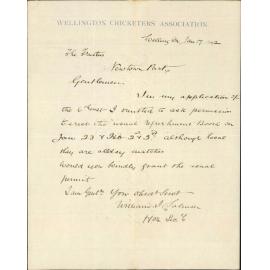 WELLINGTON CRICKETERS ASSOCIATION.
Wellington Jan 17
The Trustees
Newtown Park
Gentlemen
In my application of
the 6th inst I omitted to ask permission
to erect the usual Refreshment Booth on
Jan 23 & Feb 2nd & 3rd although local
they are all day matches
Would you kindly grant the usual
permit
I am Gentn Your obdt Servt
William J. Salmon
Hon Sec